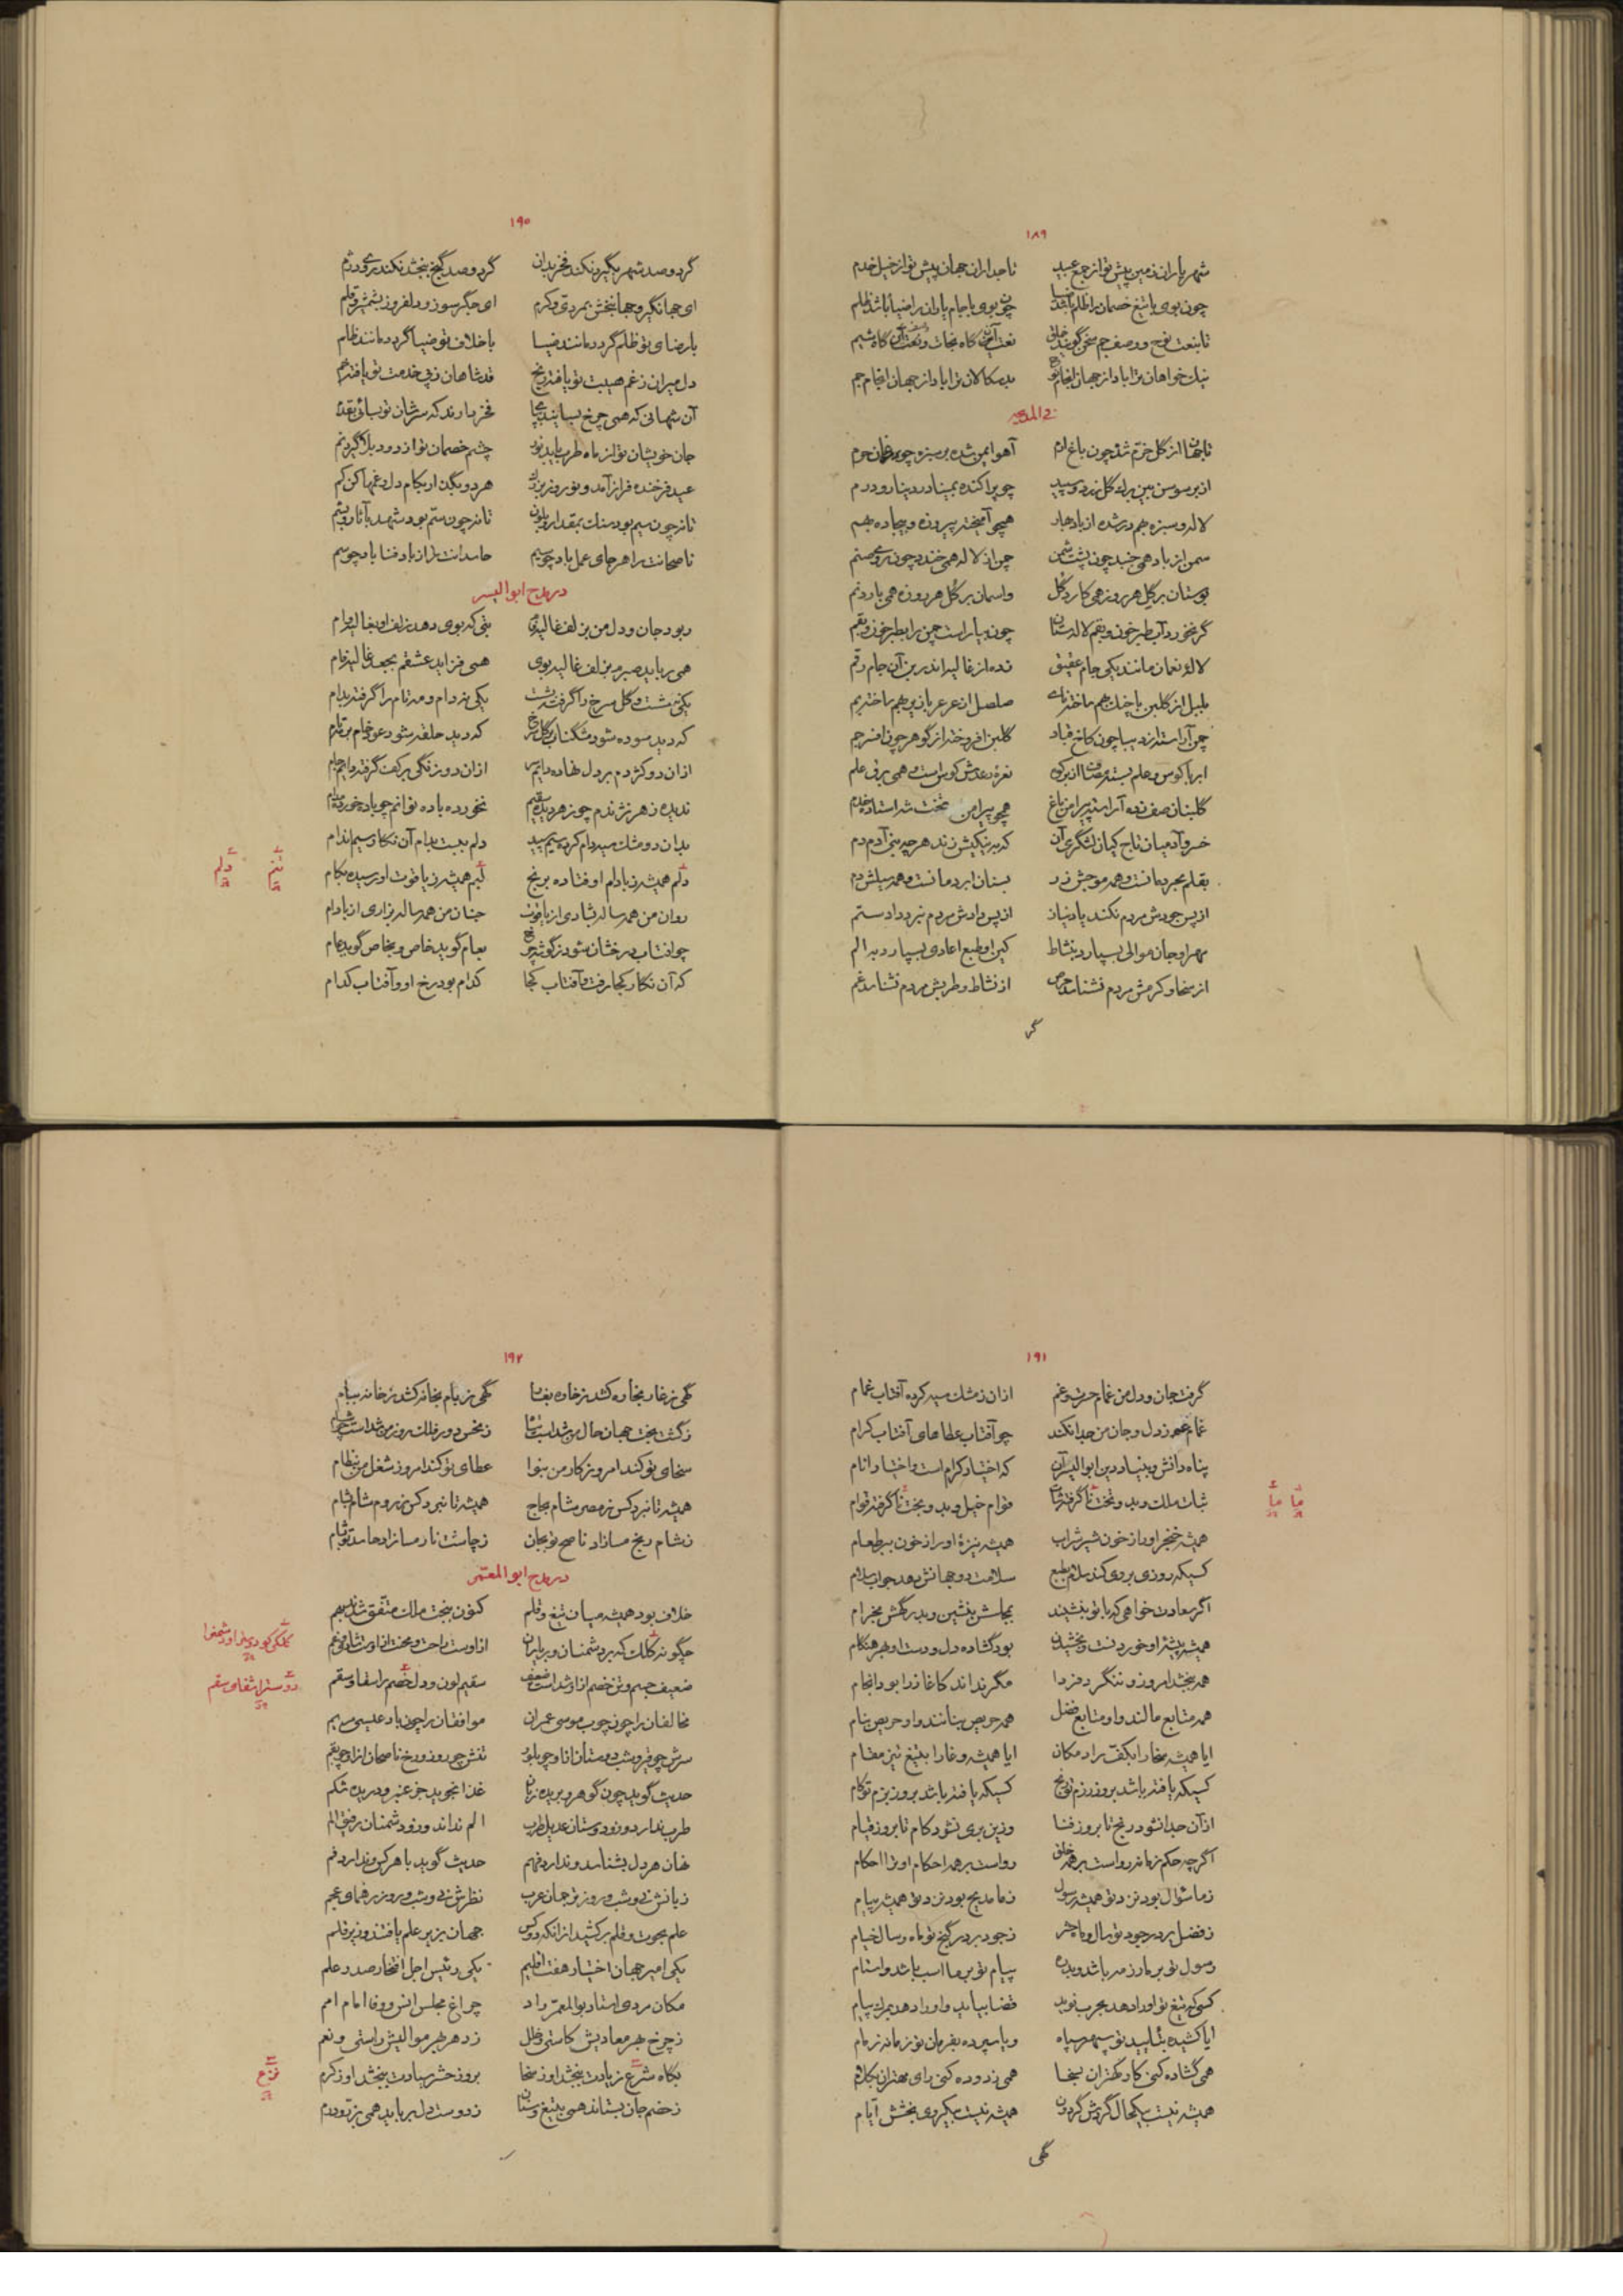 ۱۸۹
شهریاران زمین پیش تو از جمع عبید تاجداران جهان پیش تو از خیل خدم
چون بوی با تیغ خصمان را ظلم باشد ضیا چون بوی با جام یاران را ضیا باشد ظلم
تا بنعت نوح و وصف جم سخن گویند خلق
نیک خواهان ترا باد از جهان انجام نوح بدسکالان ترا باد از جهان انجام جم
فی المدیحه
تا جهان از گل خرم شد چون باغ ارم آهو ایمن شده بر سبزه چو برغمان حرم
از بر سوسن بین برگ گل زرد و سپید چو پراکنده بمینا در دینار و درم
لاله و سبزه بهم در شده از باد بهار همچو آمیخته پیروزه و بیجاده بهم
سمن از باد همی خنبد چون پشت شمن چمن از لاله همی خندد چون روی صنم
بوستان بر گل هر روز همی کارد گل واسمان بر گل هر روزه همی بارد نم
گر نخورد آب بطبر خون و بقم لالستان چون بیاراست چمن را بطبر خون و بقم
لالۀ نعمان مانند یکی جام عقیق زده از غالیه اندر بن آن جام رقم
بلبل از گلبن با چنگ بهم ساخته نای صلصل از عرعر با زیر بهم ساخته بم
چمن آراسته از دیبا چون کاخ قباد گلبن افروخته از گوهر چون افسر جم
ابر با کوس و علم بسته مصاف از بر کوه نعرۀ رعدش کوس است و همی برق علم
گلبنان صف زده آراسته پیرامن باغ همچو پیرامن تخت شه استاده خدم
خسرو آدمیان تاج کیان لشگری آن که به نیکیش زند هر چه بنی آدم دم
بقلم بحر دمانست و همه موجش زر بسنان ابر دمانست و همه سیلش دم
از پس جودش مردم نکند یاد نیاز از پس دادش مردم نبرد داد ستم
مهر او جان موالی بسپارد بنشاط کین او طبع اعادی بسپارد به الم
از سخا و کرمش مردم نشناسد حرص از نشاط و طربش مردم نشناسد غم
گر
۱۹۰
گر دو صد شهر بگیرد نکند فخر بدان گر دو صد گنج ببخشد نکند روی دژم
ای جهانگیر و جهانبخش بمردی و کرم ای جگر سوز و دلفروز بشمشیر و قلم
با رضای تو ظلم گردد مانند ضیا با خلاف تو ضیا گردد مانند ظلم
دل میران ز غم هیبت تو یافته رنج قد شاهان ز پی خدمت تو یافته خم
آن شهانی که همی چرخ بسایند بجاه فخر دارند که سرشان تو بسائی بقدم
جان خویشان تو از ماه طرب یابد نور چشم خصمان تو از دود بلا گیرد نم
عید فرخنده فراز آمد و نوروز بزرگ هر دو بگذار بکام دل و غمها کن کم
تا نه چون سیم بود سنگ بمقدار و بلون تا نه چون ستم بود شهد بآثار و بشم
ناصحانت را هر جای عمل باد چو سیم حاسدانت را از باد فنا باد چو سیم
در مدح ابوالیسر
ربود جان و دل من بزلف غالیه بتی که بوی دهد زلف او بغالیه وام
همی رباید صبرم بزلف غالیه بوی همی فزاید عشقم بجعد غالیه فام
یکی بنفشست و گل سرخ را گرفته بشست یکی ز دام و مه تام را گرفته بدام
که دید سوده شود مشگناب بر گل سرخ که دید حلقه شود عود خام بر مه تام
از آن دو کژدم بر دل نهاده دایم سر از آن دو زنگی بر کف گرفته دایم جام
ندیده زهر نژندم چو زهر دیده سقیم نخورده باده نوانم چو باده خورده مدام
بدان دو مشک سیه دام کرده سیم سپید دلم ببست بدام آن نگار سیم اندام
دلم همیشه ز بادام او فتاده برنج لبم همیشه ز یاقوت او رسیده بکام
تنم دلم
روان من همه ساله بشادی از یاقوت جنان من همه ساله بزاری از بادام
چو آفتاب درخشان شود ز گوشه چرخ بعام گوید خاص و بخاص گوید عام
که آن نگار کجا رفت و آفتاب کجا کدام بود رخ او و آفتاب کدام
۱۹۱
گرفت جان و دل من غمام حسرت و غم از آن ز مشک سیه کرده آفتاب غمام
غمام غم ز دل و جان من جدا نکند چو آفتاب عطاهای آفتاب کرام
پناه دانش و بنیاد دین ابوالیسر آن که اختیار کرام است و اختیار انام
ثبات ملک وبد و تخت ما گرفته ثبات قوام خیل وبد و بخت ما گرفته قوام
ما ما
همیشه خنجر او را ز خون شیر شراب همیشه نیزۀ او را ز خون ببر طعام
کسیکه روزی بر وی کند سلام بطبع سلامت دو جهانش دهد جواب سلام
اگر سعادت خواهی که با تو بنشیند بمجلسش بنشین و بدرگهش بخرام
همیشه پیشۀ او خوردنست و بخشیدن بود گشاده دل و دست او بهر هنگام
همه ببخشد امروز و ننگرد فردا مگر نداند کآغاز را بود انجام
همه متابع مالند و او متابع فضل همه حریص بنانند و او حریص بنام
ایا همیشه سخا را بکف راد مکان ایا همیشه وغا را بتیغ تیز مقام
کسیکه یافته باشد بروز رزم تو رنج کسیکه یافته باشد بروز بزم تو کام
از آن جدا نشود رنج تا بروز فنا وزین بری نشود کام تا بروز قیام
اگر چه حکم زمانه رواست بر همه خلق رواست بر همه احکام او ترا احکام
ز ما سؤال بود نزد تو همیشه رسول ز ما مدیح بود نزد تو همیشه پیام
ز فضل بر در جود تو سال و ماه حشر ز جود بر در گنج تو ماه و سال خیام
رسول تو بر ما زر باشد و بدره پیام تو بر ما اسب باشد و استام
کسی که تیغ تو او را دهد بحرب نوید قضا بیاید و او را دهد بمرگ پیام
ایا کشیده بتأیید تو سپهر سپاه و یا سپرده بفرمان تو زمانه زمام
همی گشاده کنی کار کهتران بسخا همی زدوده کنی رای مهتران بکلام
همیشه نیست بیکحال گردش گردون همیشه نیست بیکروی بخشش ایام
گهی
۱۹۲
گهی ز غار بخاره کشد ز خاره بغار گهی ز بام بخانه کشد ز خانه ببام
سخای تو کند امروز کار من بنوا عطای تو کند امروز شغل من بنظام
همیشه تا نبرد کس ز مصر شام بچاج همیشه تا نبرد کس ز روم شام بشام
ز شام رنج مسازاد ناصح تو بجان ز چاشت ناز مسازاد حاسد تو بشام
در مدح ابوالمعمر
خلاف بود همیشه میان تیغ و قلم کنون ببخت ملک متفق شدند بهم
چگونه کلک که بر دشمنان و بر یاران از اوست راحت و محنت از اوست شادی و غم
ضعیف جسم و تن خصم از او شد است ضعیف سقیم لون و دل خصم را شفا و سقم
دوستر اشفای سقم
مخالفان را چون چوب موسی عمران موافقان را چون باد عیسی مریم
حدیث گوید چون گوهر و بریده زبان غذا نجوید جز عنبر و دریده شکم
طرب ندارد و زو دوستان عدیل طرب الم نداند و زو دشمنان رفیق الم
نهان هر دل بشناسد و ندارد فهم حدیث گوید با هر کس و ندارد فم
زبانش نی و شب و روز ترجمان عرب نظرش نی و شب و روز رهنمای عجم
علم بجوت و قلم برکشید از آنکه دو کس جهان بزیر علم یافتند و زیر قلم
یکی امیر جهان اختیار هفت اقلیم یکی رئیس اجل افتخار صدر و علم
مکان مردی استاد بوالمعمر راد چراغ مجلس انس و وفا امام امم
ز چرخ بهر معادیش کاستی و خلل ز دهر بهر موالیش راستی و نعم
بگاه شرع زیادت ببخشد او ز سخا بروز حشر سیادت ببخشد او ز کرم
نزع
ز خصم جان بستاند همی بتیغ و سنان ز دوست دل برباید همی بزر و درم